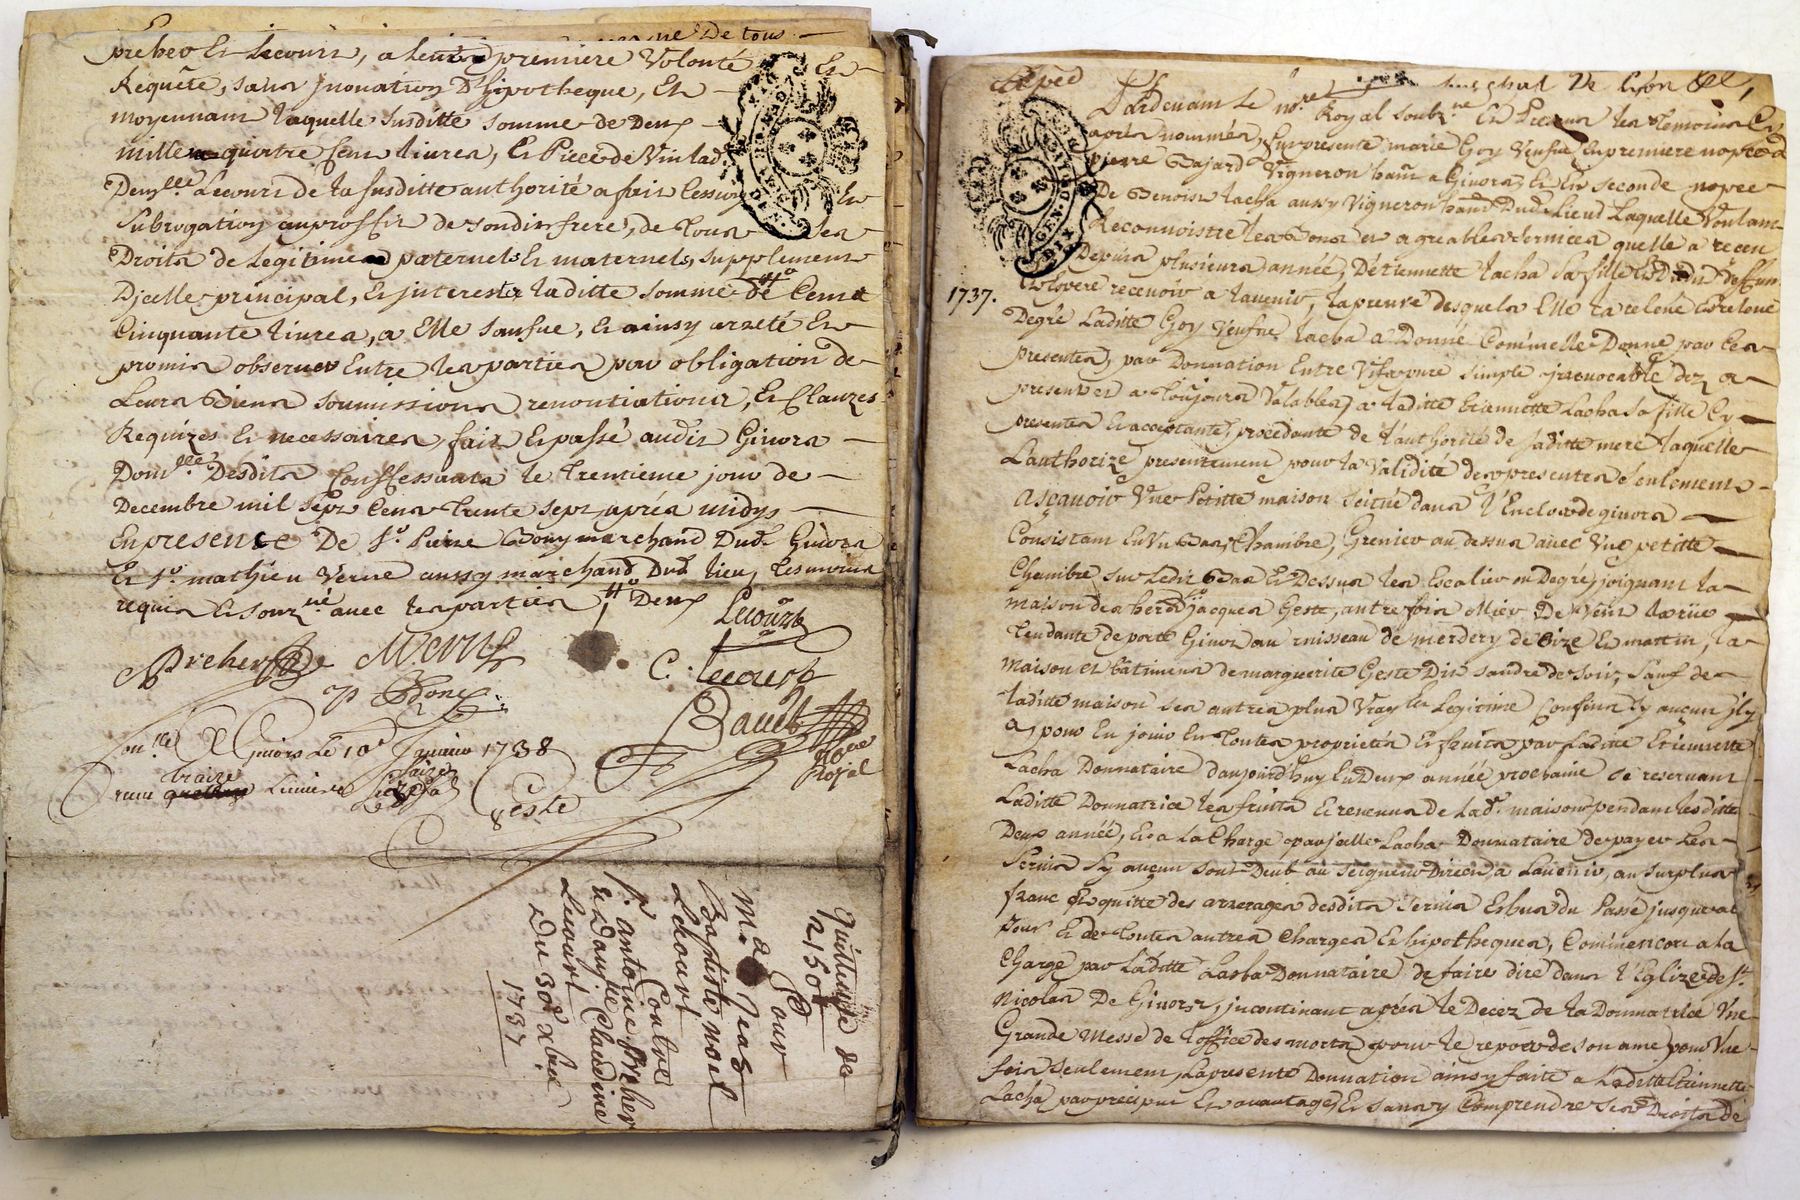 De tous
preher Et Lecourt, a leur premiere Volonté Et
Requête, sans jnonation D'hipotheque, Et
moyennant laquelle susditte somme de Deux
mille quattre Cent livres, Et Piece de Vin lad.
Demlle Lecourt de la susditte authorité a fait Cession Et
Subrogation auproffit de sondit frere, de Tous ses
Droits de Legitime paternels Et maternels, supplement
Djcelle principal, Et jnterests laditte somme de Cent
Cinquante livres, a Elle saufue, Et ainsy arreté Et
promis observer Entre les parties par obligation de
Leurs Biens soumissions renontiations, Et Clauzes
Requizes Et necessaires, fait Et passé audit Givors
Domlle Desdits Conffessants le Trentieme jour de
Decembre mil sept Cents Trente sept, aprés midy
En presence De Sr. Pierre Bony marchand Dud. Givors
Et Sr. mathieu Verne aussy marchand Dud. lieu, Tesmoins
requis Et souznés avec les parties /. Deux
Lecourt
Preher
M. Verne
C: Lecourt
P Bony
Bauet
Nore Royal
Conlle a Givors le 10e Januier 1738
treize
Geste
Quittance de
2150lt
Pour
Me Jean
Baptiste noel
Lecourt
Contre
Sr. antoine Preher
et Damlle Claudine
Lecourt
Du 30e Xbre
1737
Expéd
Pardeuant Le nore Royal soubzné Et Presens les Temoins Cy
aprés nommés, Est presente marie Goy Veufue En premiere nopce d
pierre Bajard Vigneron hant a Givors, Et En seconde nopce
De Benoist Lacha aussy Vigneron hant Dud. Lieu, Laquelle Voulant
Reconnoistre les Bons et agreables services quelle a receu
Depuis plusieurs année, D'Etiennette Lacha sa fille Et Dudit deffunt
1737.
Et Espere receuoir a lauenir, la preuue desquels Elle la releué Et releue
Degré Laditte Goy Veufue Lacha a Donné Comme elle Donne par Ces
presentes, par Donnation Entre Vifs pure simple jrreuocable dez a
present et a Toujours Valables, a laditte Etiennette Lacha sa fille Cy
presente Et acceptante, procedante de l'authorité de saditte mere laquelle
L'authorize presentement pour la Validité des presentes seulement
Asçauoir Vne Petitte maison scitué dans l'Enclos de givors
Consistant En Vn Bas, Chambre, Grenier au dessus auec Vne petitte
Chambre sur Ledit Bas Et Dessus les Escalier ou Degré, joignant la
maison des hers jacques Geste, autrefois ollier De Vent la rüe
Tendante de porte Givors au ruisseau de merdery de bize Et mattin, la
maison et bâtiment de marguerite Geste Dit sandre de soir, Sauf de
laditte maison ses autres plus Vrays Et Legitime Confins sy aucun jl y
a, pour En jouir En Toutes proprietés Et fruits par Laditte Etiennette
Lacha Donnataire d'aujourd'huy En Deux année prochaine se reseruant
Laditte Donnatrice les fruits Et reuenus de lad. maison pendant lesdittes
Deux année, Et a La Charge par jcelle Lacha Donnataire de payer Les
Seruis sy aucun sont Deub au seigneur Direct, a Lauenir, au surplus
franc Et quitte des arrerages desdits seruis Et bus du Passé jusqu'au
Jour Et de Toutes autres Charges Et hipotheques, Comme encore a la
Charge par Laditte Lacha Donnataire de faire dire dans l'Eglize de St.
Nicolas De Givors, jncontinant aprés le Decez de la Donnatrice Vne
Grande Messe de l'office des morts pour le repos de son ame pour Vne
fois seulement, La presente Donnation ainsy faite a Laditte Etiennette
Lacha par precipue Et auantages, Et sans y Comprendre ses Droits de